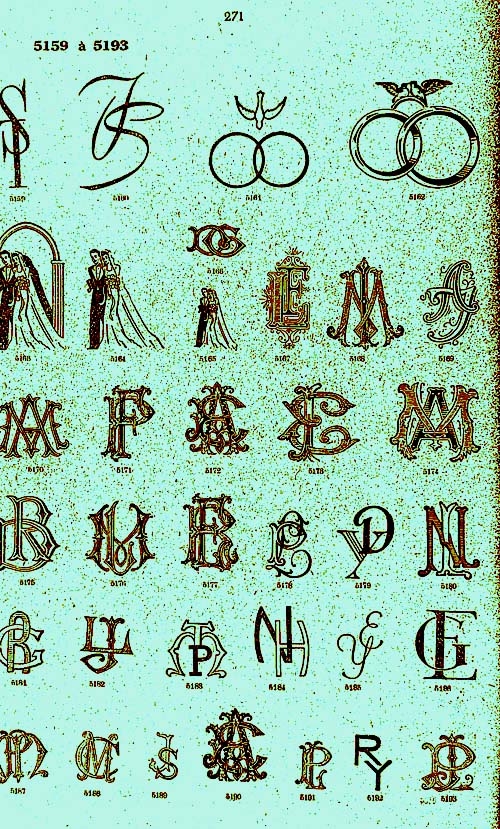 271
5159 à 5193
5159 5160 5161 5162
5166
5163 5164 5165 5167 5168 5169
5170 5171 5172 5173 5174
5175 5176 5177 5178 5179 5180
5181 5182 5183 5184 5185 5186
5187 5188 5189 5190 5191 5192 5193